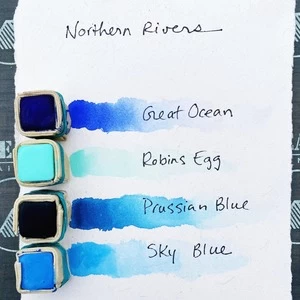 Northern Rivers
Great Ocean
Robins Egg
Prussian Blue
Sky Blue